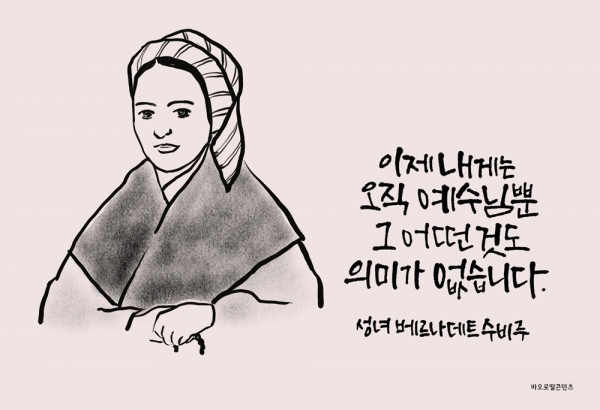 이제 내게는
오직 예수님뿐
그 어떤 것도
의미가 없습니다.
성녀 베르나데트 수비루
바오로딸콘텐츠